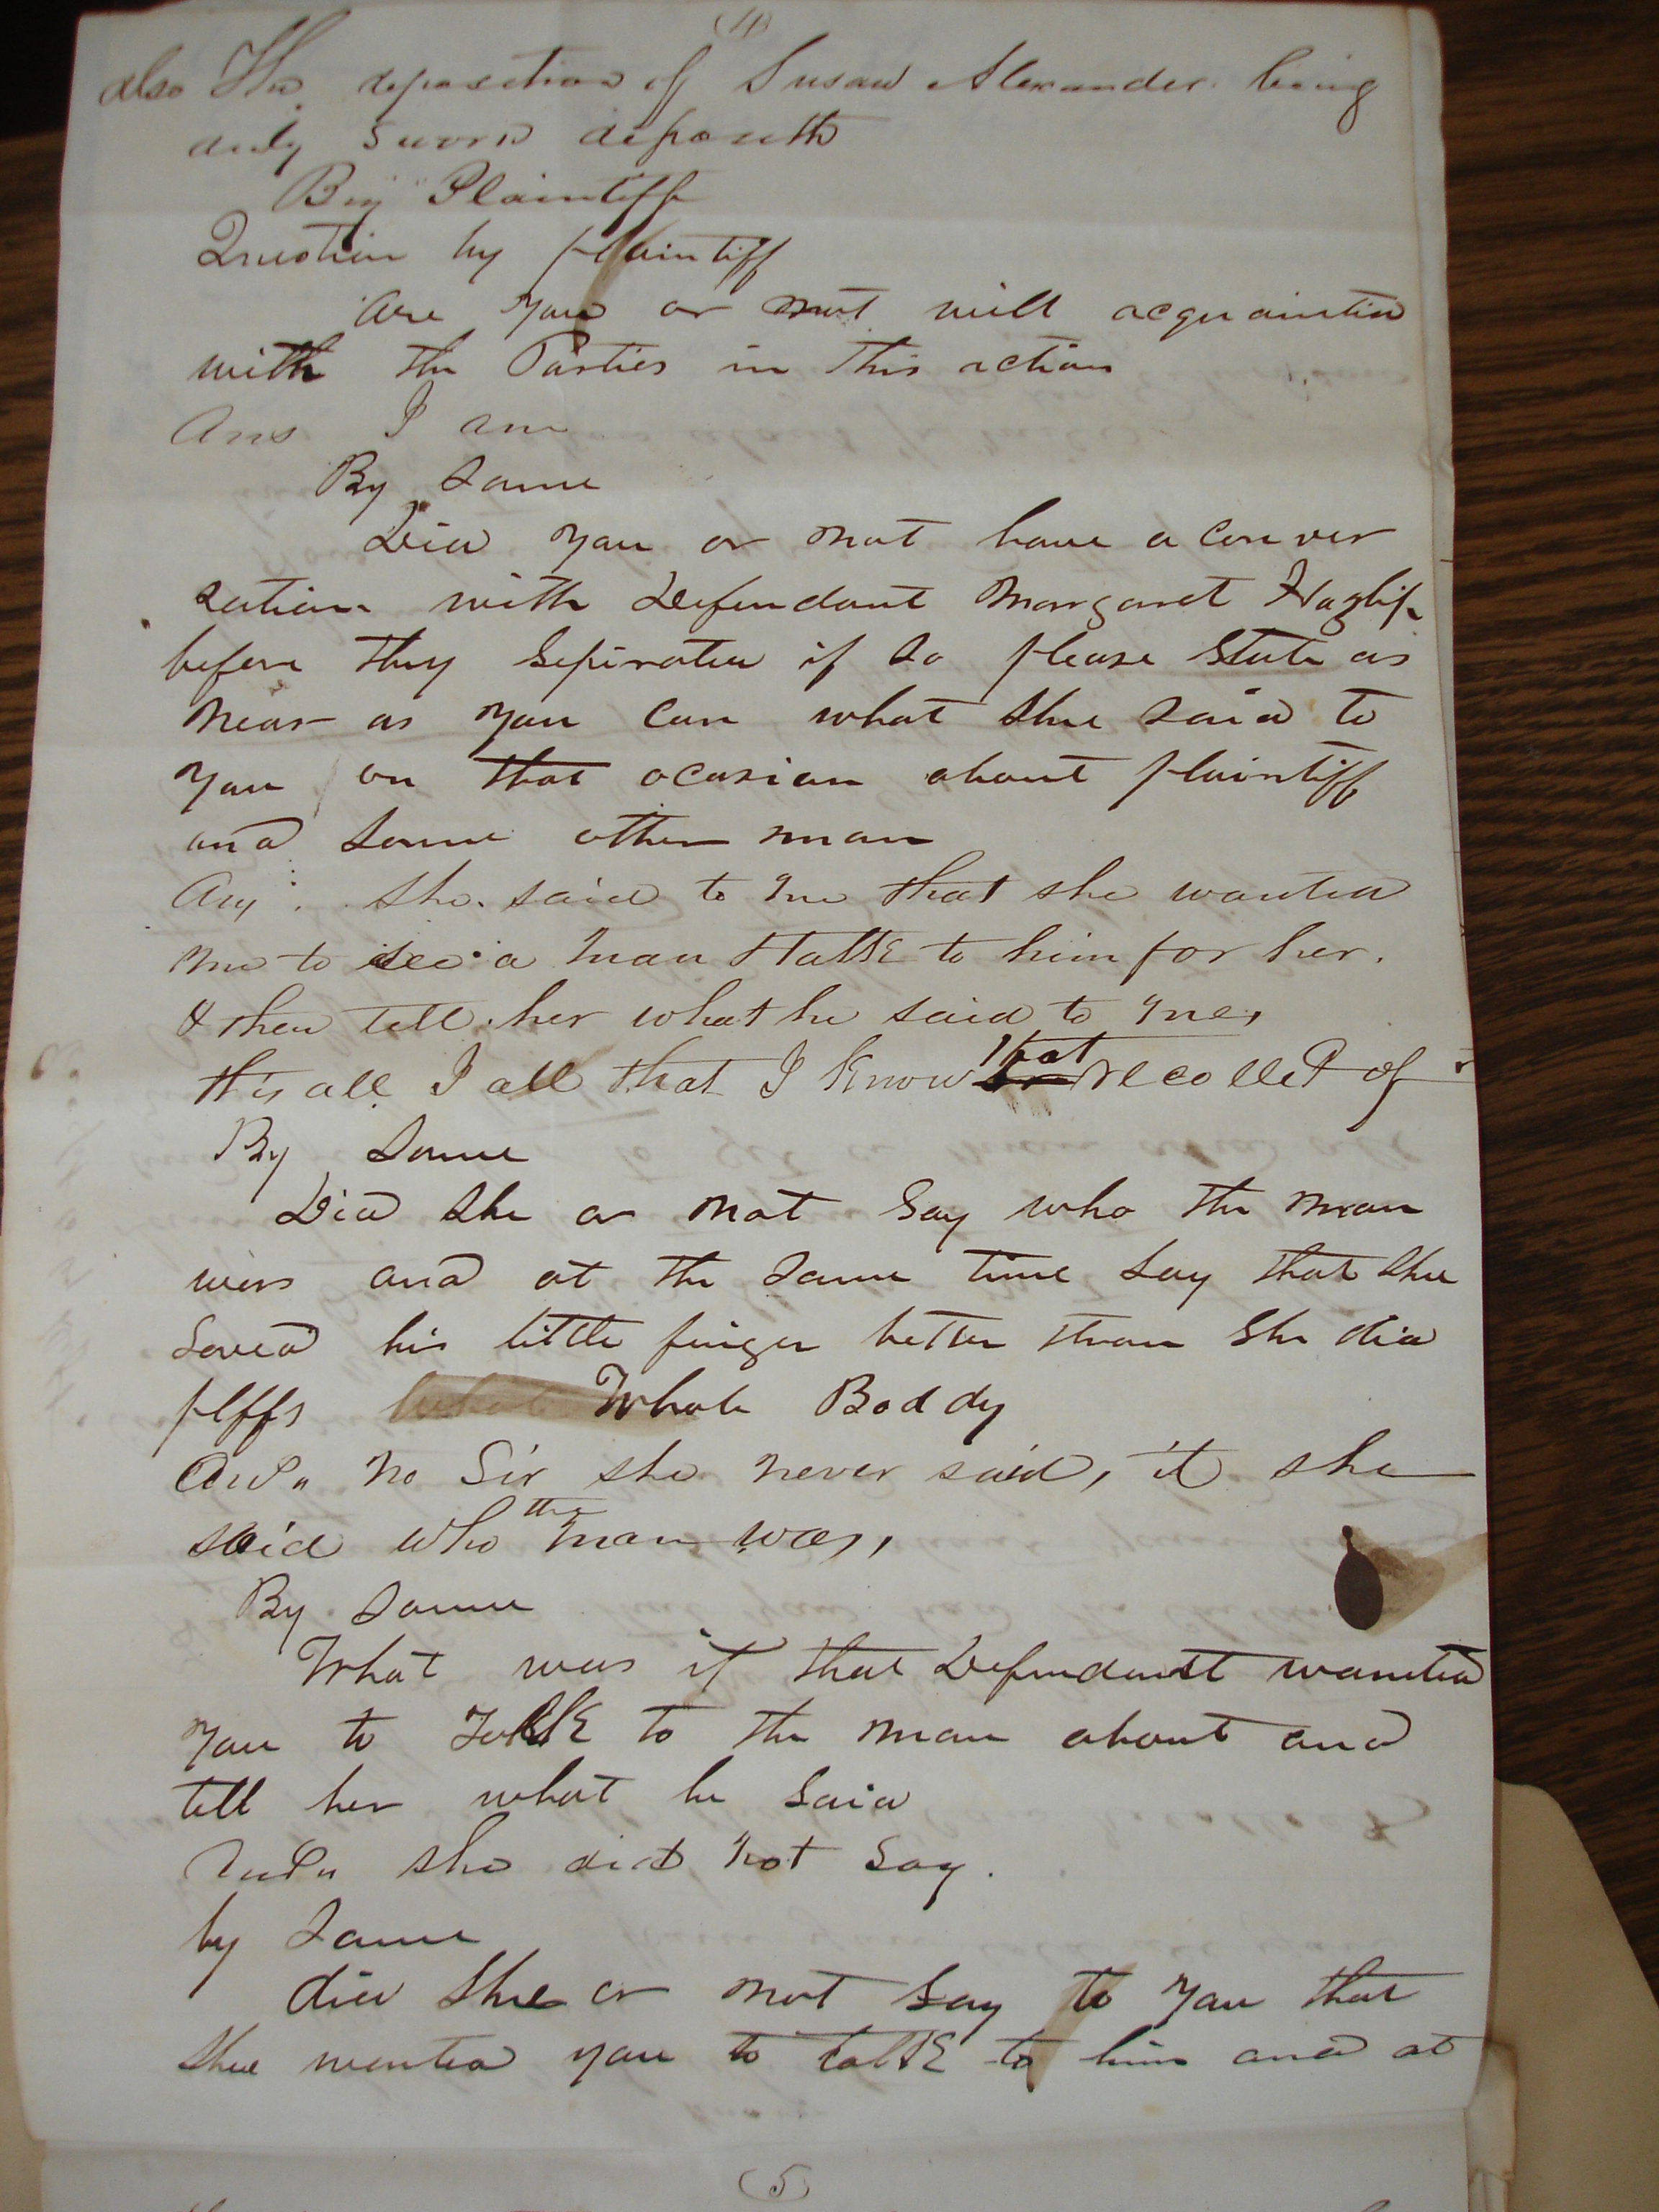 (4)
also The deposition of Susan Alexander being
duly sworn deposeth
By Plaintiff
Question by plaintiff
Are you or not well acquainted
with the Parties in this action
Ans I am
By Same
Did you or not have a conver
sation with Defendant Margaret Hazlip
before they Seperated if so please State as
near as you can what she said to
you on that ocasion about plaintiff
and some other man
Ans. she said to me that she wanted
me to see a man & talk to him for her.
& then tell her what he said to me,
this all I all that I know that recollect of
By Same
Did she or not Say who the man
was and at the same time say that she
Loved his little finger better than she did
plffs Whole Boddy
Ans. no Sir she never said, it she
said who the man was,
By Same
What was it that Defendant wanted
you to talk to the man about and
tell her what he said
Ans. she did not say.
by Same
did she or not say to you that
she wanted you to talk to him and at
(5)